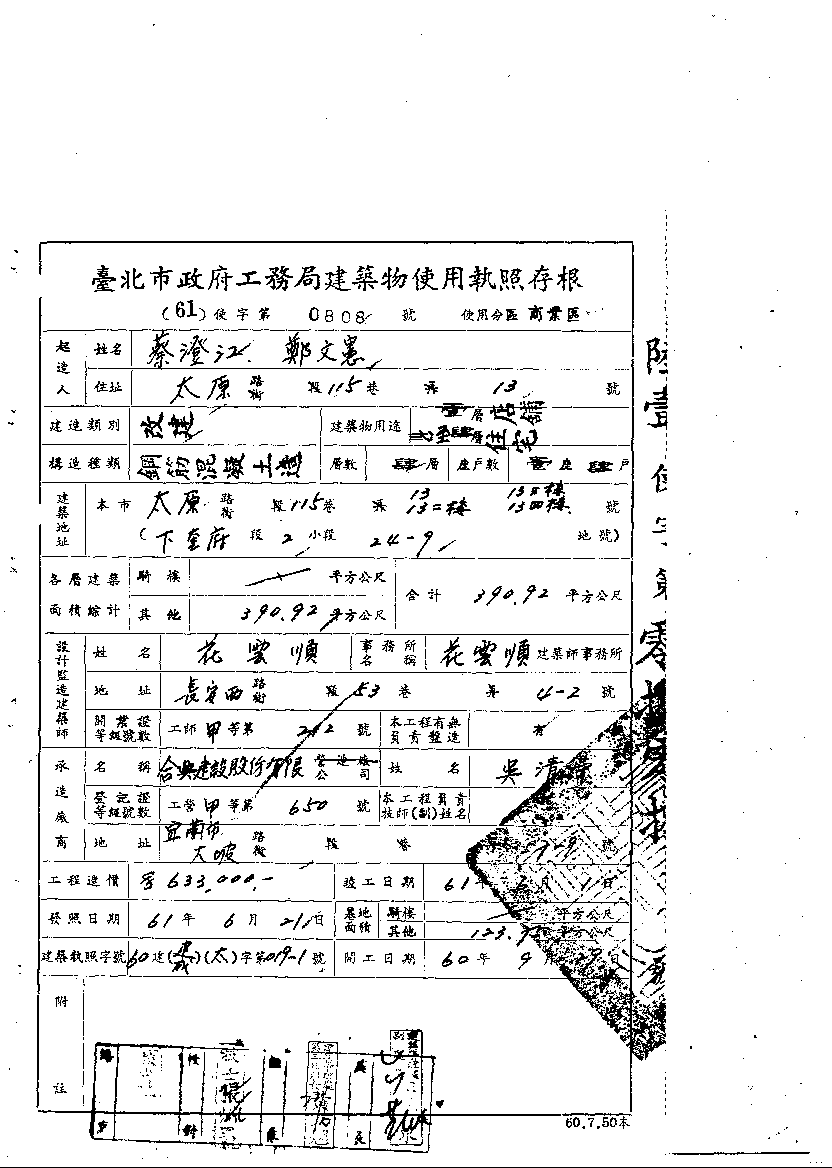 臺北市政府工務局建築物使用執照存根
(61) 使字第 0808 號 使用分區 商業區
起造人 姓名 蔡澄江 鄭文憲
住址 太原 路街 段 115 巷 弄 13 號
建造類別 改建 建築物用途 壹層店鋪 肆層住宅
構造種類 鋼筋混凝土造 層數 肆層 座戶數 壹座 肆戶
建築地址 本市 太原 路街 段 115 巷 弄 13 13二樓 13三樓 13四樓 號
(下奎府 段 2 小段 24-9 地號)
各層建築面積綜計 騎樓 平方公尺 合計 390.92 平方公尺
其他 390.92 平方公尺
設計監造建築師 姓名 花雲順 事務所名稱 花雲順 建築師事務所
地址 長安西 路街 段 53 巷 弄 4-2 號
開業證等級號數 工師 甲 等第 212 號 本工程有無負責監造 有
承造廠商 名稱 合興建設股份有限 營造廠公司 姓名 吳清
登記證等級號數 工營 甲 等第 650 號 本工程負責技師(副)姓名
地址 宜蘭市 大坡 路街 段 巷 號
工程造價 633,000.- 竣工日期 61 年 6 月 1 日
發照日期 61 年 6 月 21 日 基地面積 騎樓 平方公尺
其他 123. 平方公尺
建築執照字號 60 建 (太) 字第 019-1 號 開工日期 60 年 9 月 29 日
附註
60.7.50本
陸壹使字第零捌零捌